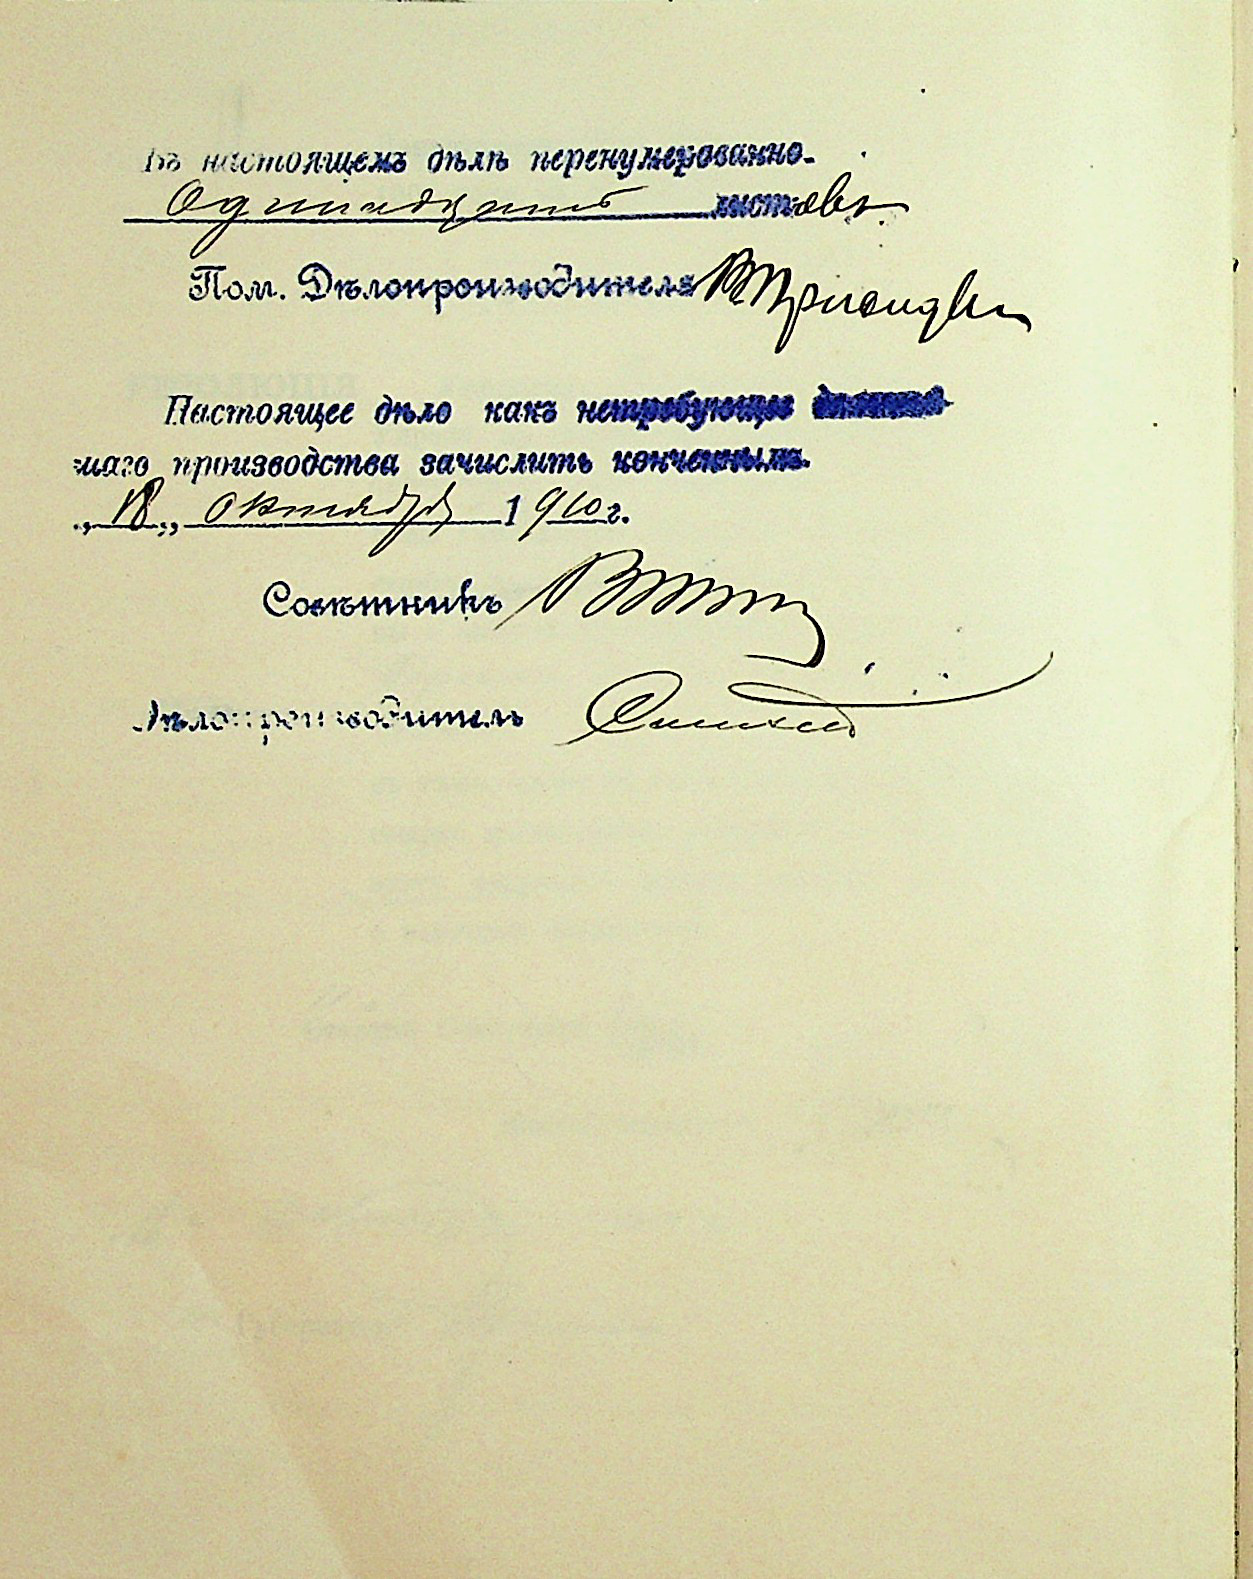 Въ настоящемъ дѣлѣ перенумерованно.
Одинадцать листовъ.
Пом. Дѣлопроизводителя
Настоящее дѣло какъ нетребующее дальнѣй-
шаго производства зачислить конченнымъ.
„18„ октября 1910 г.
Совѣтникъ
Дѣлопроизводитель